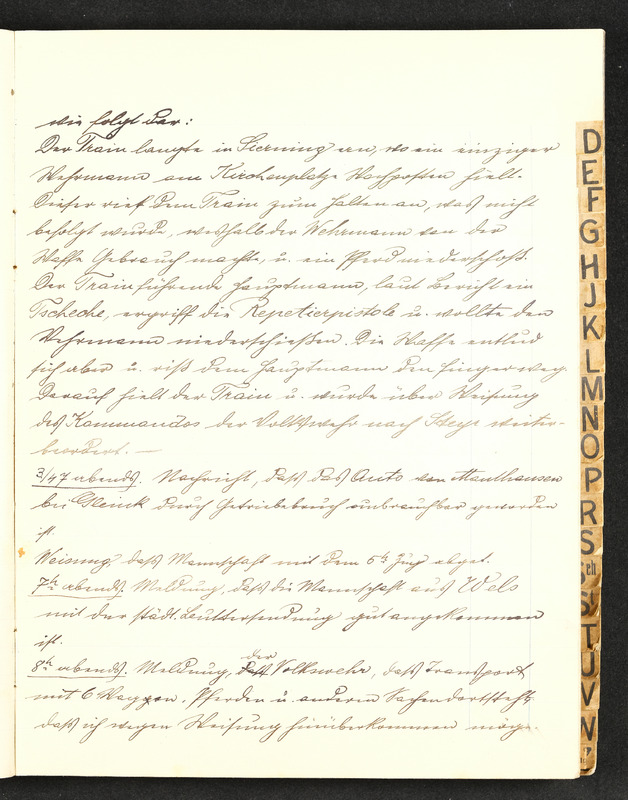 wie folgt dar:
Der Train langte in Sierning an, wo ein einziger
Wehrmann am Kirchenplatze Wachposten hielt.
Dieser rief dem Train zum Halten an, was nicht
befolgt wurde, weshalb der Wehrmann von der
Waffe Gebrauch machte, u. ein Pferd niederschoß.
Der Trainführende Hauptmann, laut Bericht ein
Tscheche, ergriff die Repetierpistole u. wollte den
Wehrmann niederschießen. Die Waffe entlud
sich aber u. riß dem Hauptmann den Finger weg.
Darauf hielt der Train u. wurde über Weisung
des Kommandos der Volkswehr nach Steyr weiter-
beordert. —
3/47 abends. Nachricht, daß das Auto von Mauthausen
bei Gleink durch Getriebebruch unbrauchbar geworden
ist.
Weisung, daß Mannschaft mit dem 5h Zug abget.
7h abends. Meldung, daß die Mannschaft aus Wels
mit der städt. gut angekommen
ist.
8h abends. Meldung, daß der Volkswehr, daß Transport
mit 6 Waggon, Pferden u. anderen Sachen dortsteht
daß ich wegen Weisung hinüberkommen möge.
D
E
F
G
H
J
K
L
M
N
O
P
R
S
Sch
St
T
U
V
W